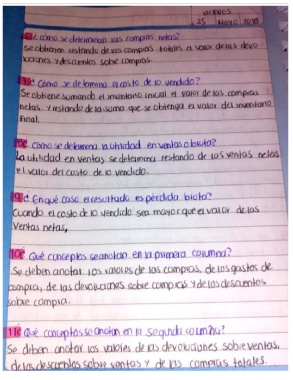 VIERNES
25 Mayo 2020
6¿ como se determinan las compras netas?
se obtienen restando de las compras totales el valor de las devo-
luciones y descuentos sobre compras.
7¿ Cómo se determina el costo de lo vendido?
Se obtiene sumando el inventario inicial el valor de las compras
netas y restando de la suma que se obtenga el valor del inventario
final.
8¿ Cómo se determina la utilidad en ventas o bruta?
La utilidad en ventas se determina restando de las ventas netas
el valor del costo de lo vendido.
9¿ En qué caso el resultado es pérdida bruta?
Cuando el costo de lo vendido sea mayor que el valor de las
Ventas netas,
10¿ Qué conceptos se anotan en la primera columna?
Se deben anotar los valores de las compras, de los gastos de
compra, de las devoluciones sobre compras y de los descuentos
sobre compra.
11¿ Qué conceptos se anotan en la segunda columna?
Se deben anotar los valores de las devoluciones sobre ventas,
de los descuentos sobre ventas y de las compras totales.